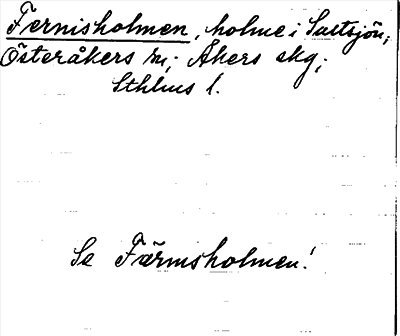 Fernisholmen, holme i Saltsjön;
Österåkers sn; Åkers skg;
Sthlms l.
Se Färnisholmen!